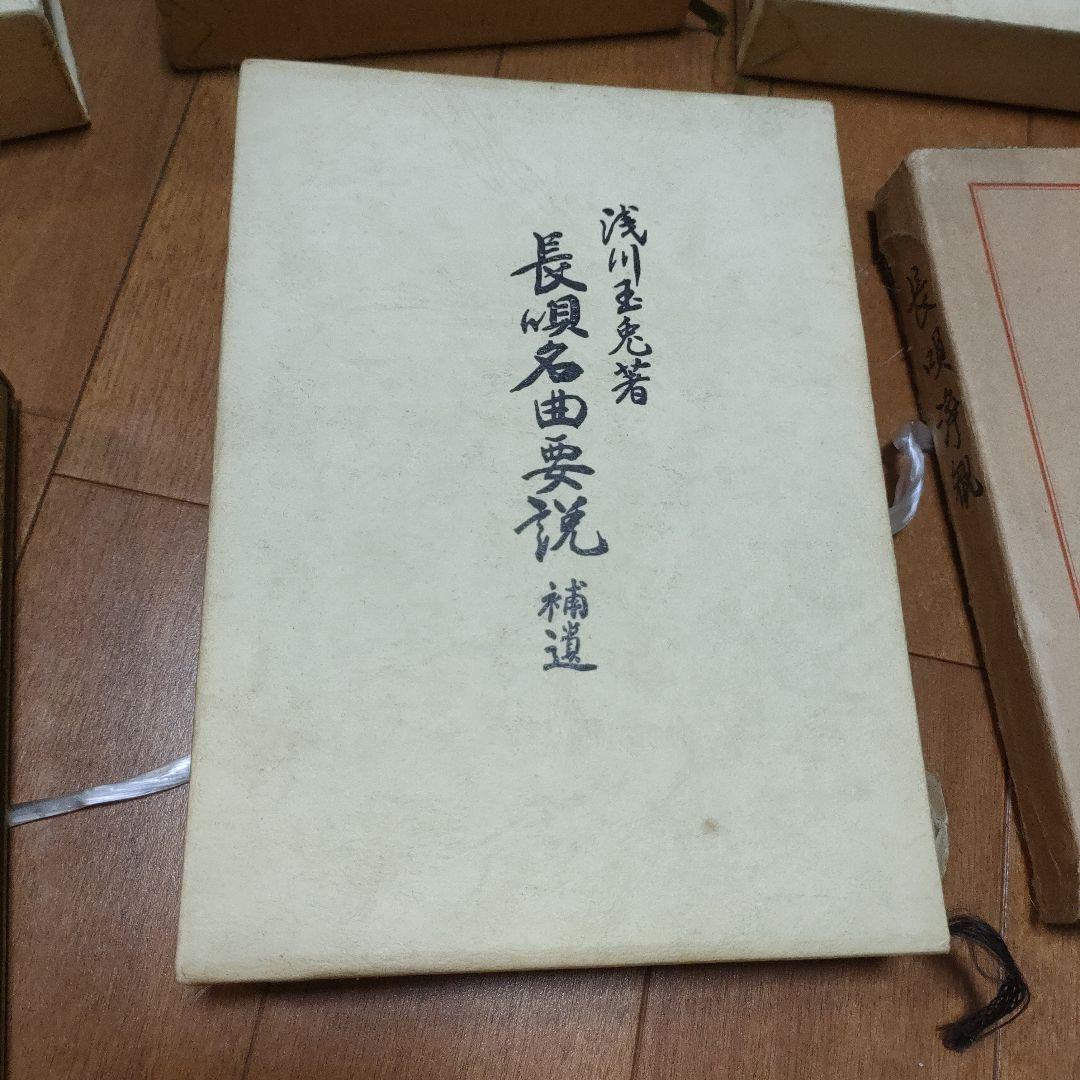 浅川玉兎著
長唄名曲要説
補遺
長唄